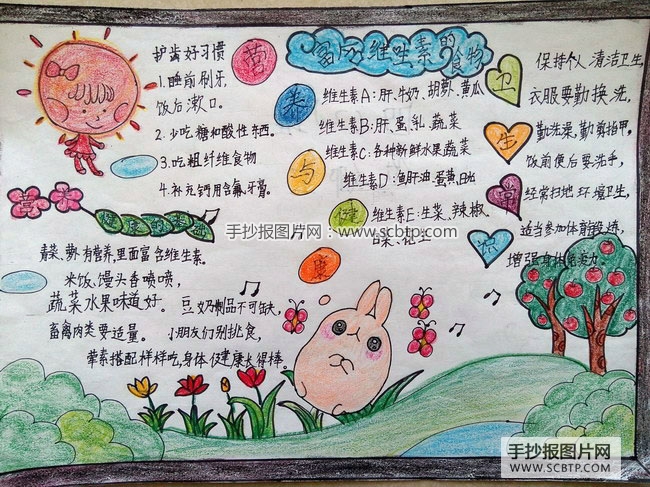 护齿好习惯
1.睡前刷牙,
饭后漱口。
2.少吃糖和酸性东西。
3.吃粗纤维食物
4.补充钙用含氟牙膏。
营
养
与
健
康
富含维生素的食物
维生素A:肝、牛奶、胡萝、黄瓜
维生素B:肝、蛋、乳、蔬菜
维生素C:各种新鲜水果蔬菜
维生素D:鱼肝油、蛋黄、
维生素E:生菜、辣椒、
卫
生
常
识
保持个人清洁卫生
衣服要勤换洗,
勤洗澡,勤剪指甲,
饭前便后要洗手,
经常扫地环境卫生,
适当参加体育锻
增强
青菜、萝卜有营养,里面富含维生素.
米饭、馒头香喷喷,
蔬菜水果味道好。豆奶制品不可缺,
畜禽肉类要适量。小朋友们别挑食,
荤素搭配样样吃,身体健康长得棒。
手抄报图片网:www.scbtp.com
手抄报图片网
WWW.SCBTP.COM